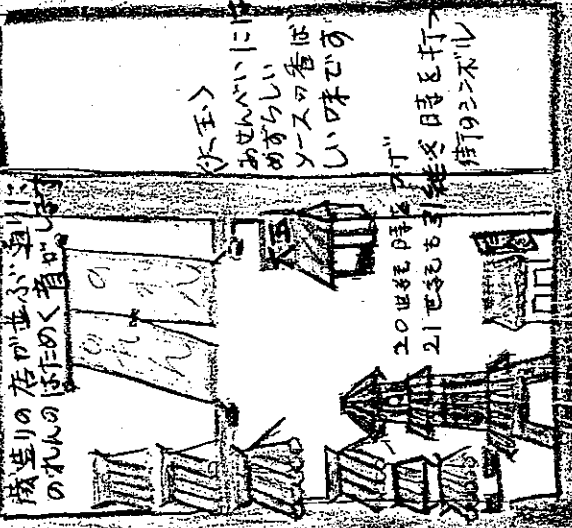 蔵造りの店が並ぶ通りに
のれんのはためく音がします
のれん
のれん
〈大玉〉
おせんべいには
めずらしい
ソースの香ば
しい味です
20世紀時をつげ
21世紀も引継ぎ時を打つ
街のシンボル